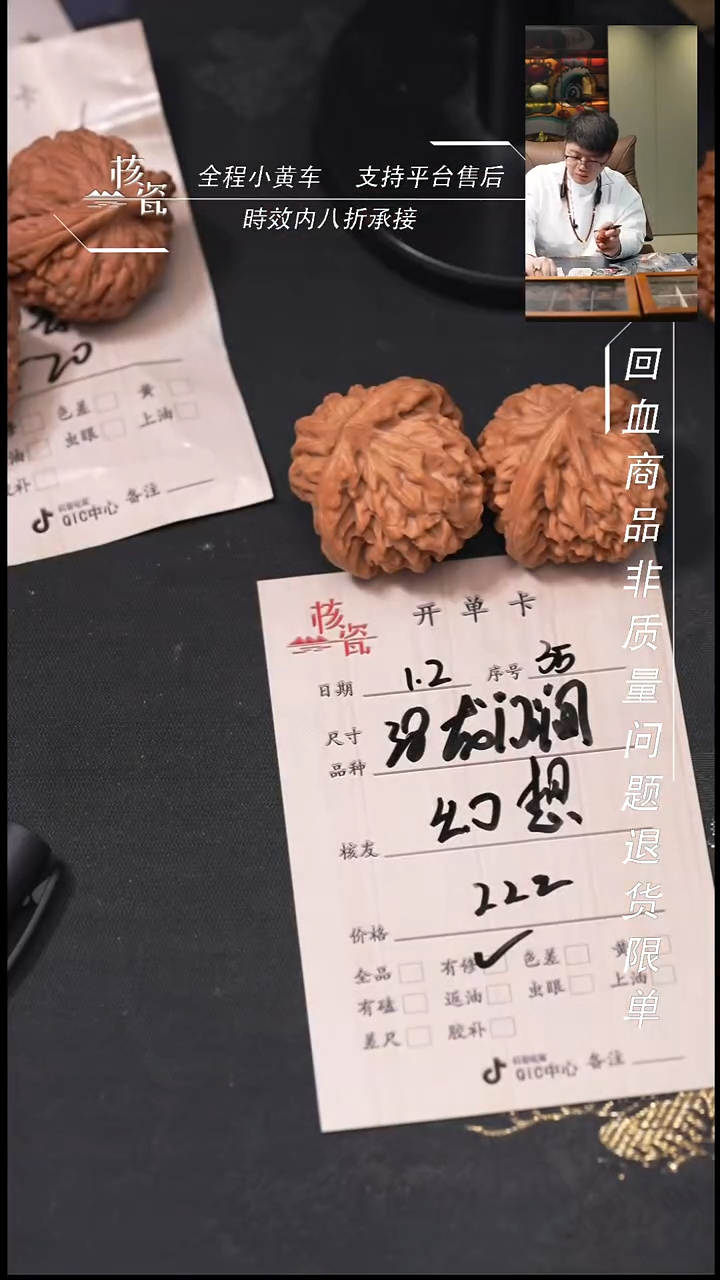 核瓷
全程小黄车 支持平台售后
時效内八折承接
回血商品非质量问题退货限单
20
色差 黄
虫眼 上油
QIC中心 备注
核瓷
开单卡
日期 1.2 序号 35
尺寸 38
品种
幻想
核友
222
价格
全品 有修 ✓ 色差 黄
有磕 返油 虫眼 上油
差尺 胶补
抖音电商
QIC中心 备注